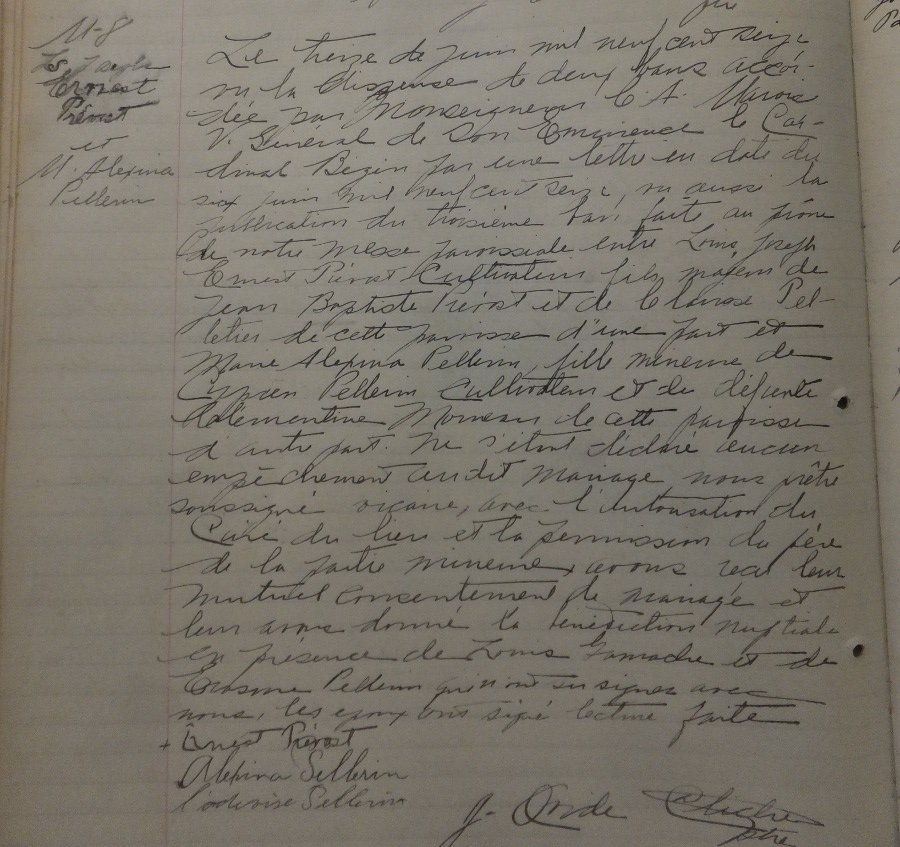 M-8
Ls Joseph
Ernest
Prévost
et
M. Alexina
Pellerin
Le treize de juin mil neuf cent seize
vu la dispense de deux bans accor-
dée par Monseigneur C. A. Marois
V. Général de Son Eminence le Car-
dinal Bégin par une lettre en date du
six juin mil neuf cent seize, vu aussi la
publication du troisième ban faite au prône
de notre messe paroissiale entre Louis Joseph
Ernest Prévost Cultivateur fils majeur de
Jean Baptiste Prévost et de Pel-
letier de cette paroisse d'une part et
Marie Alexina Pellerin, fille mineure de
Pellerin Cultivateur et de défunte
Clémentine Moreau de cette paroisse
d'autre part. Ne s'étant déclaré aucun
empêchement audit mariage nous prêtre
soussigné vicaire, avec l'autorisation du
Curé du lieu et la permission du père
de la partie mineure, avons reçu leur
mutuel consentement de mariage et
leur avons donné la bénédiction nuptiale
en présence de Louis Gamache et de
Erasme Pellerin qui n'ont su signer avec
nous, les époux ont signé lecture faite
+ Ernest Prévost
Alexina Pellerin
Pellerin
J. Ovide
ptre